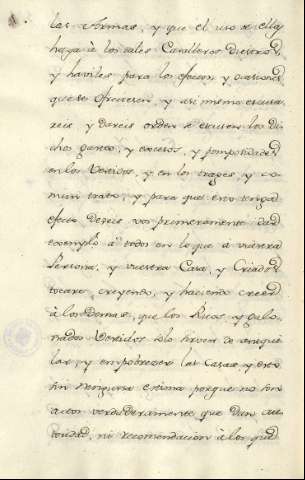 las Armas, y que el uso de ellas
haga à los tales Cavalleros Diestros,
y haviles para los efectos, y ocasiones
que se ofrecieren, y asi mismo escusa
reis, y dareis orden se escusen los di
chos gastos, y excesos, y pomposidades
en los Vestidos, y en los trages, y co
mun trato, y para que esto tenga
efecto deveis vos primeramente dar
exemplo à todos en lo que a vuestra
Persona, y vuestra Casa, y Criados
tocare, creyendo, y haciendo creer
à los Demas, que los Ricos, y galo
nados Vestidos solo sirven de aniqui
lar, y empobrezer las Casas, y esto
sin ninguna estima porque no son
actos verdaderamente que dan au
toridad, ni recomendacion à los que